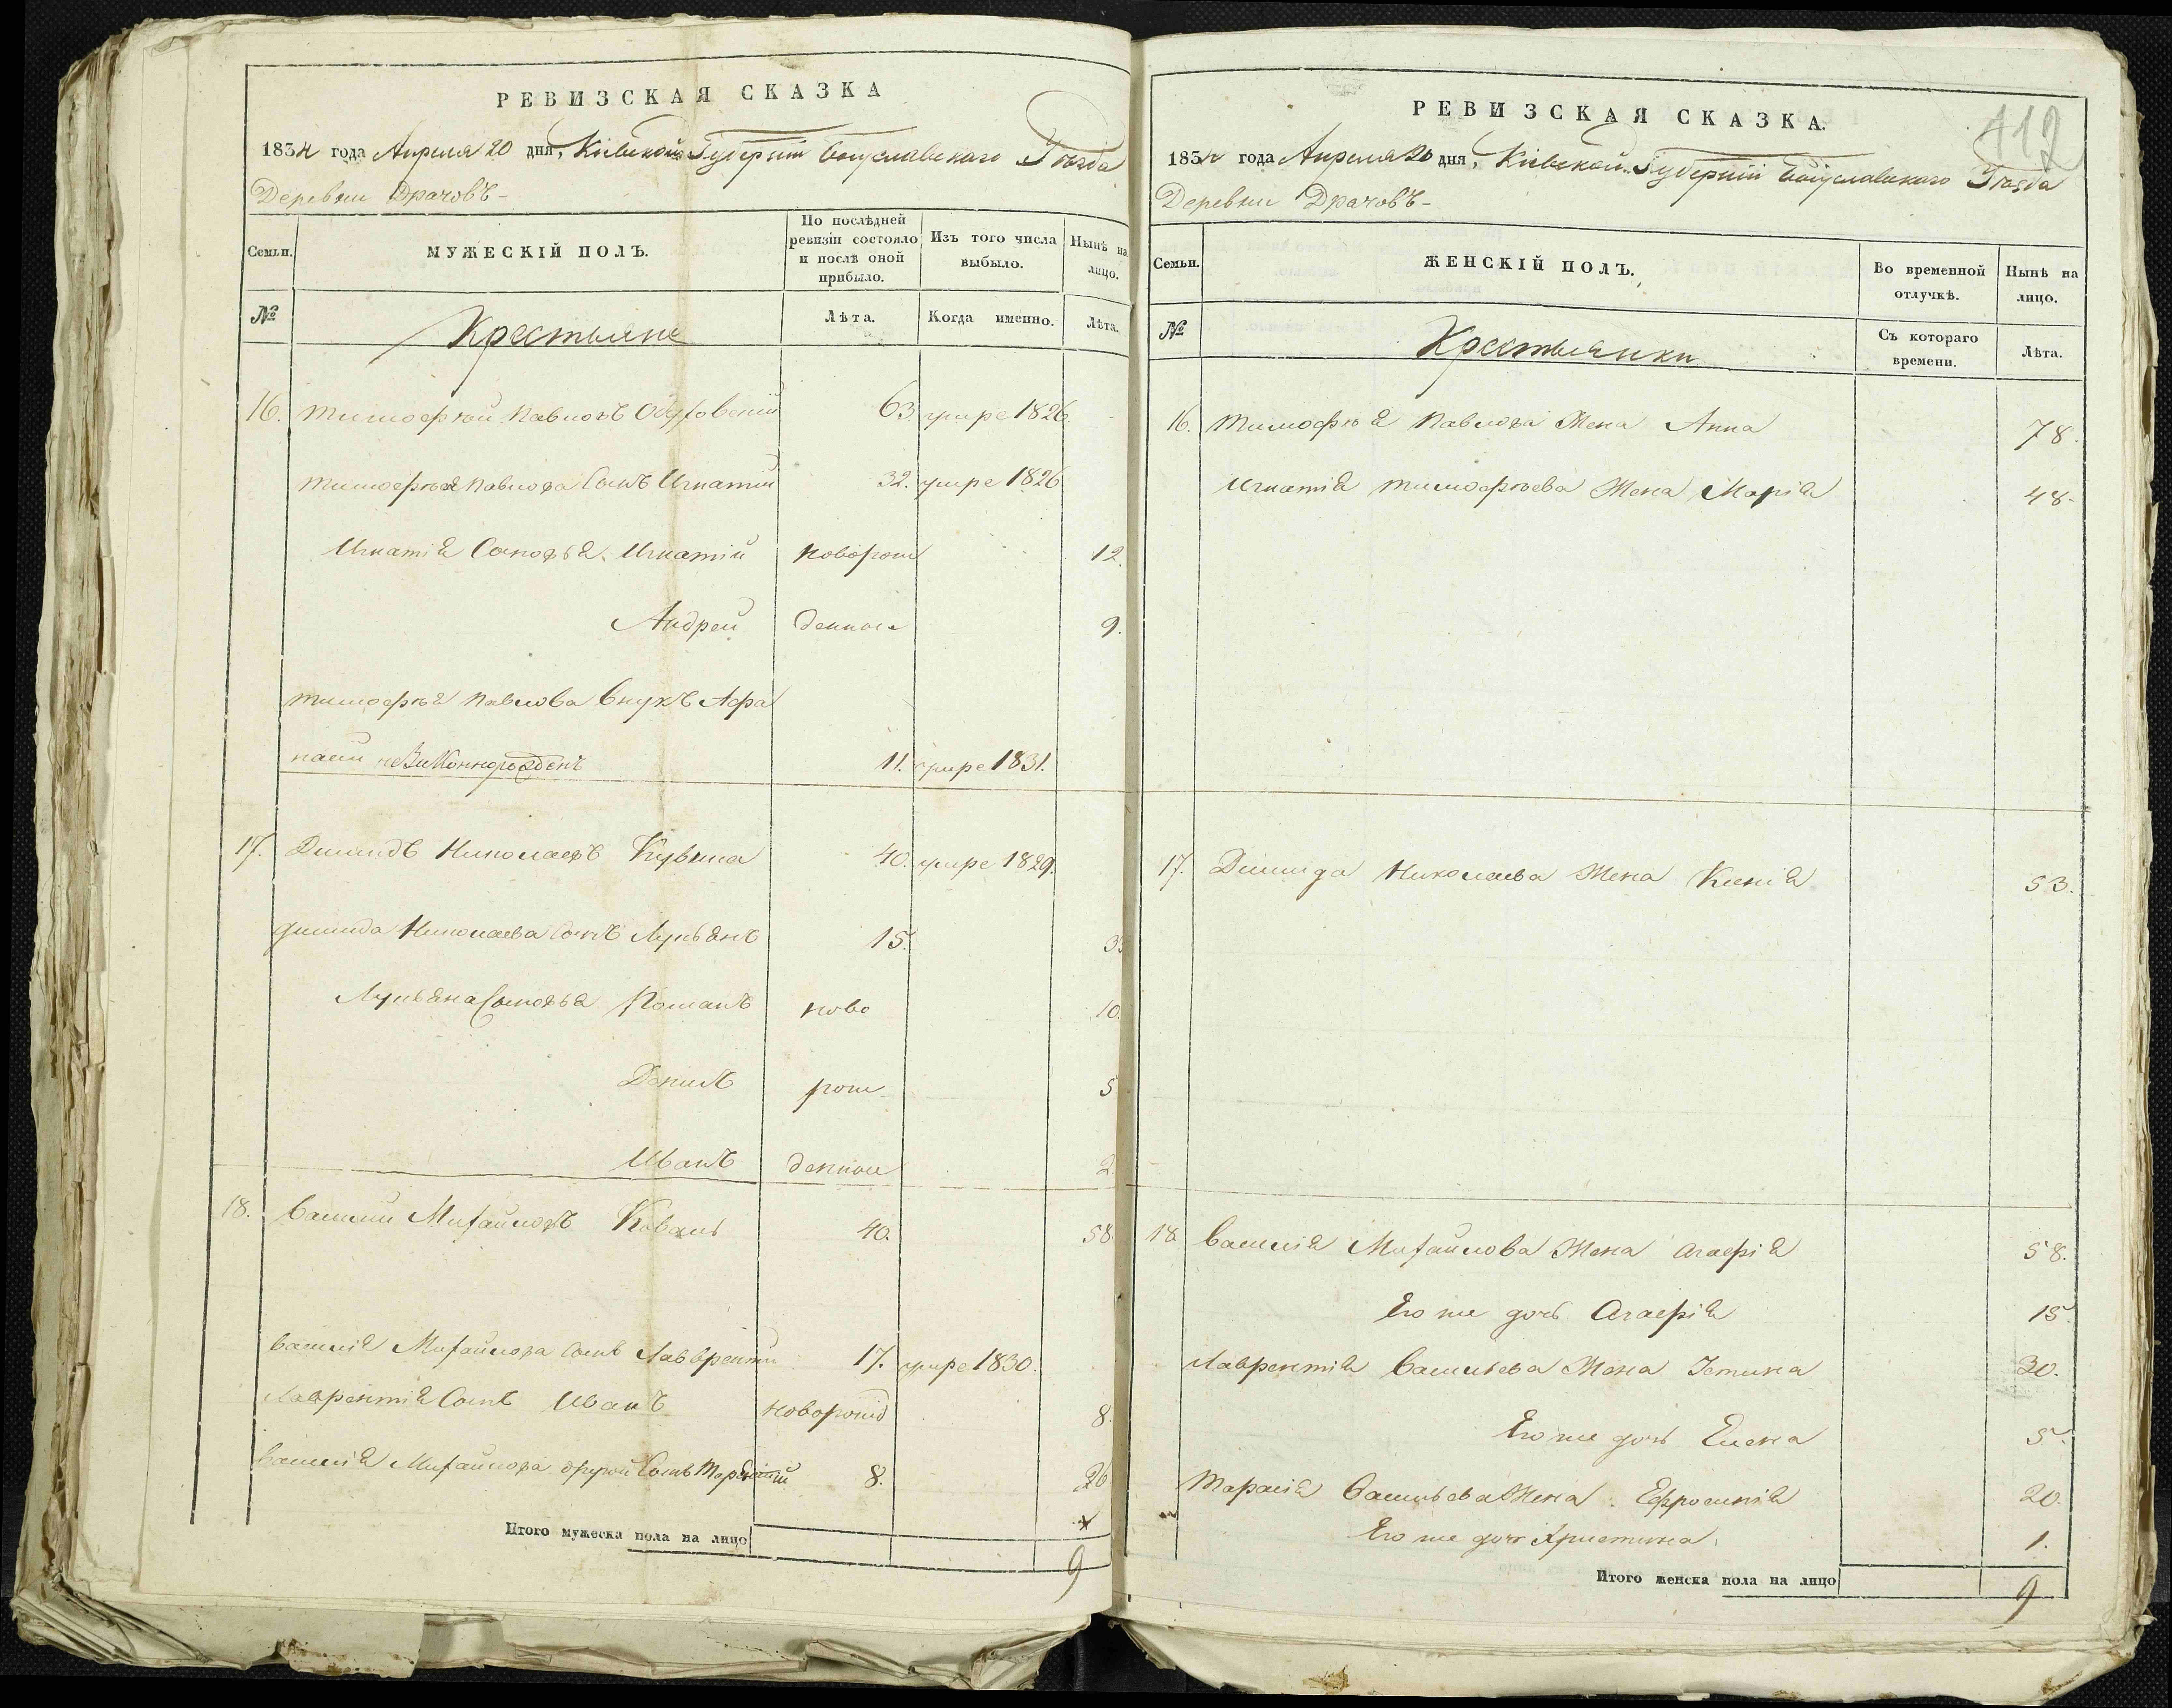 РЕВИЗСКАЯ СКАЗКА
1834 года Апреля 20 дня, Кіевской Губерніи Богуславскаго Уѣзда
Деревни Драчовъ-
Семьи.
МУЖЕСКІЙ ПОЛЪ.
По послѣдней ревизіи состояло и послѣ оной прибыло.
Изъ того числа выбыло.
Нынѣ на лицо.
№
Крестьяне
Лѣта.
Когда именно.
Лѣта.
16. Тимофѣй Павловъ 63 умре 1826.
Тимофѣя Павлова Сынъ Игнатій 32. умре 1826
Игнатія Сыновья. Игнатій новорож 12.
Андрей денные 9.
Тимофѣя Павлова Внукъ Афа
насій 11. умре 1831.
17. Димидъ Николаевъ 40. умре 1829.
Димида Николаева Сынъ Лукьянъ 15. 33
Лукьяна Сыновья Романъ ново 10.
Данилъ рож 5
Иванъ денные 2.
18. Василий Михайловъ Коваль 40. 58.
Василія Михайлова Сынъ Лаврентій 17. умре 1830.
Лаврентія Сынъ Иванъ новорожд 8.
Василія Михайлова другой Сынъ Тарасій 8. 26
Итого мужеска пола на лицо 9
112
РЕВИЗСКАЯ СКАЗКА.
1834 года Апреля 20 дня, Кіевской Губерніи Богуславскаго Уѣзда
Деревни Драчовъ-
Семьи.
ЖЕНСКІЙ ПОЛЪ.
Во временной отлучкѣ.
Нынѣ на лицо.
№
Крестьянки
Съ котораго времени.
Лѣта.
16. Тимофѣя Павлова Жена Анна 78.
Игнатія Тимофѣева Жена Марія 48-
17. Димида Николаева Жена Ксенія 53.
18. Василія Михайлова Жена Агафія 58.
Его же дочь Агафія 15
Лаврентія Васильева Жена Устина 30.
Его же дочь Елена 5.
Тарасія Васильева Жена. Ефросинія 20.
Его же дочь Христина. 1.
Итого женска пола на лицо 9